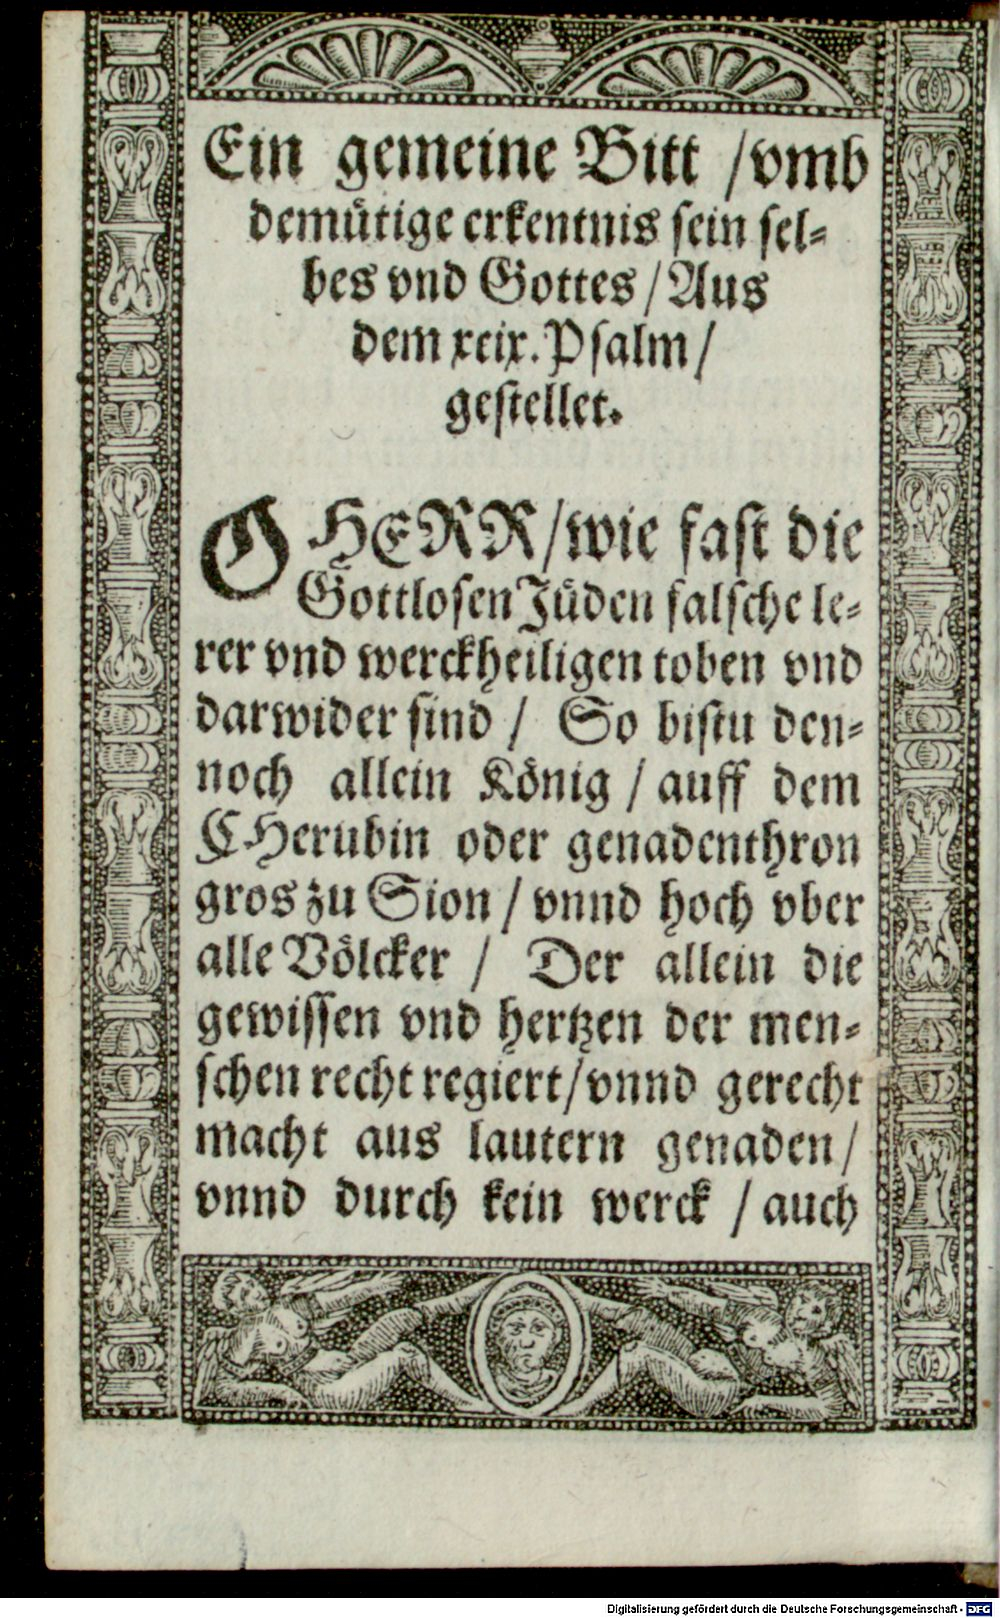 Ein gemeine Bitt / vmb
demütige erkentnis sein sel-
bes vnd Gottes / Aus
dem xcix. Psalm /
gestellet.
O HERR / wie fast die
Gottlosen Jüden falsche le-
rer vnd werckheiligen toben vnd
darwider sind / So bistu den-
noch allein König / auff dem
CHerubin oder genadenthron
gros zu Sion / vnnd hoch vber
alle Völcker / Der allein die
gewissen vnd hertzen der men-
schen recht regiert / vnnd gerecht
macht aus lautern genaden /
vnnd durch kein werck / auch
Digitalisierung gefördert durch die Deutsche Forschungsgemeinschaft - DFG